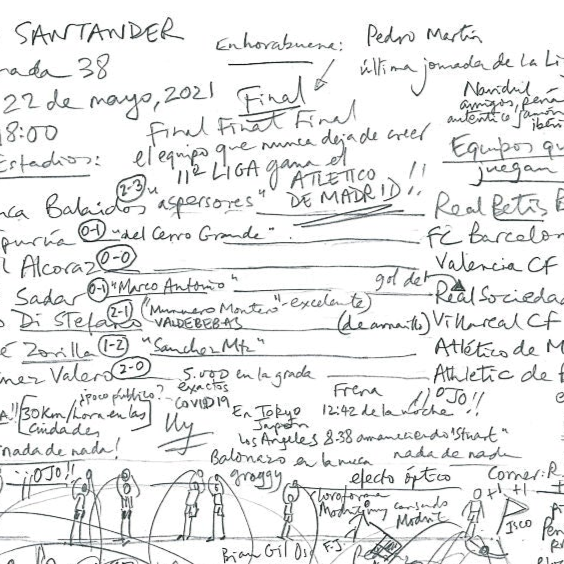 SANTANDER
Enhorabuena: Pedro Martín
nada 38
última jornada de la Li
22 de mayo, 2021
Final
Navidul
amigos, peña
auténtico jamón
ibéri
18:00
Final Final Final
el equipo que nunca deja de creer
Equipos qu
juegan
Estadios:
11ª LIGA gana el
ATLETICO
DE MADRID!!
nca Balaídos 2-3 "aspersores" Real Betis B
purúa 0-1 "del Cerro Grande" FC Barcelon
l Alcoraz 0-0 Valencia CF
Sadar 0-1 "Marco Antonio" gol del Real Sociedad
o Di Stefano 2-1 ("Munuera Montero"-excelente) (de amarillo) Villareal CF
VALDEBEBAS
é Zorilla 1-2 "Sanchez Mtz" Atlético de M
nez Valero 2-0 5.000 en la grada Athletic de B
exactos
COVID19
¿poco público?
Frena
¡¡OJO!!
A!! 30 km/hora en las
ciudades
Uy
En Tokyo
Japón 12:42 de la noche
Los Angeles 8:38 amaneciendo "Stuart"
nada de nada!
nada de nada
Balonazo en la nuca
groggy
efecto óptico
Corner: R.
¡¡¡OJO!!
cloroformo
Modric
cansado
Modric
+1 +1
Isco
Bian Gil Os
F.J